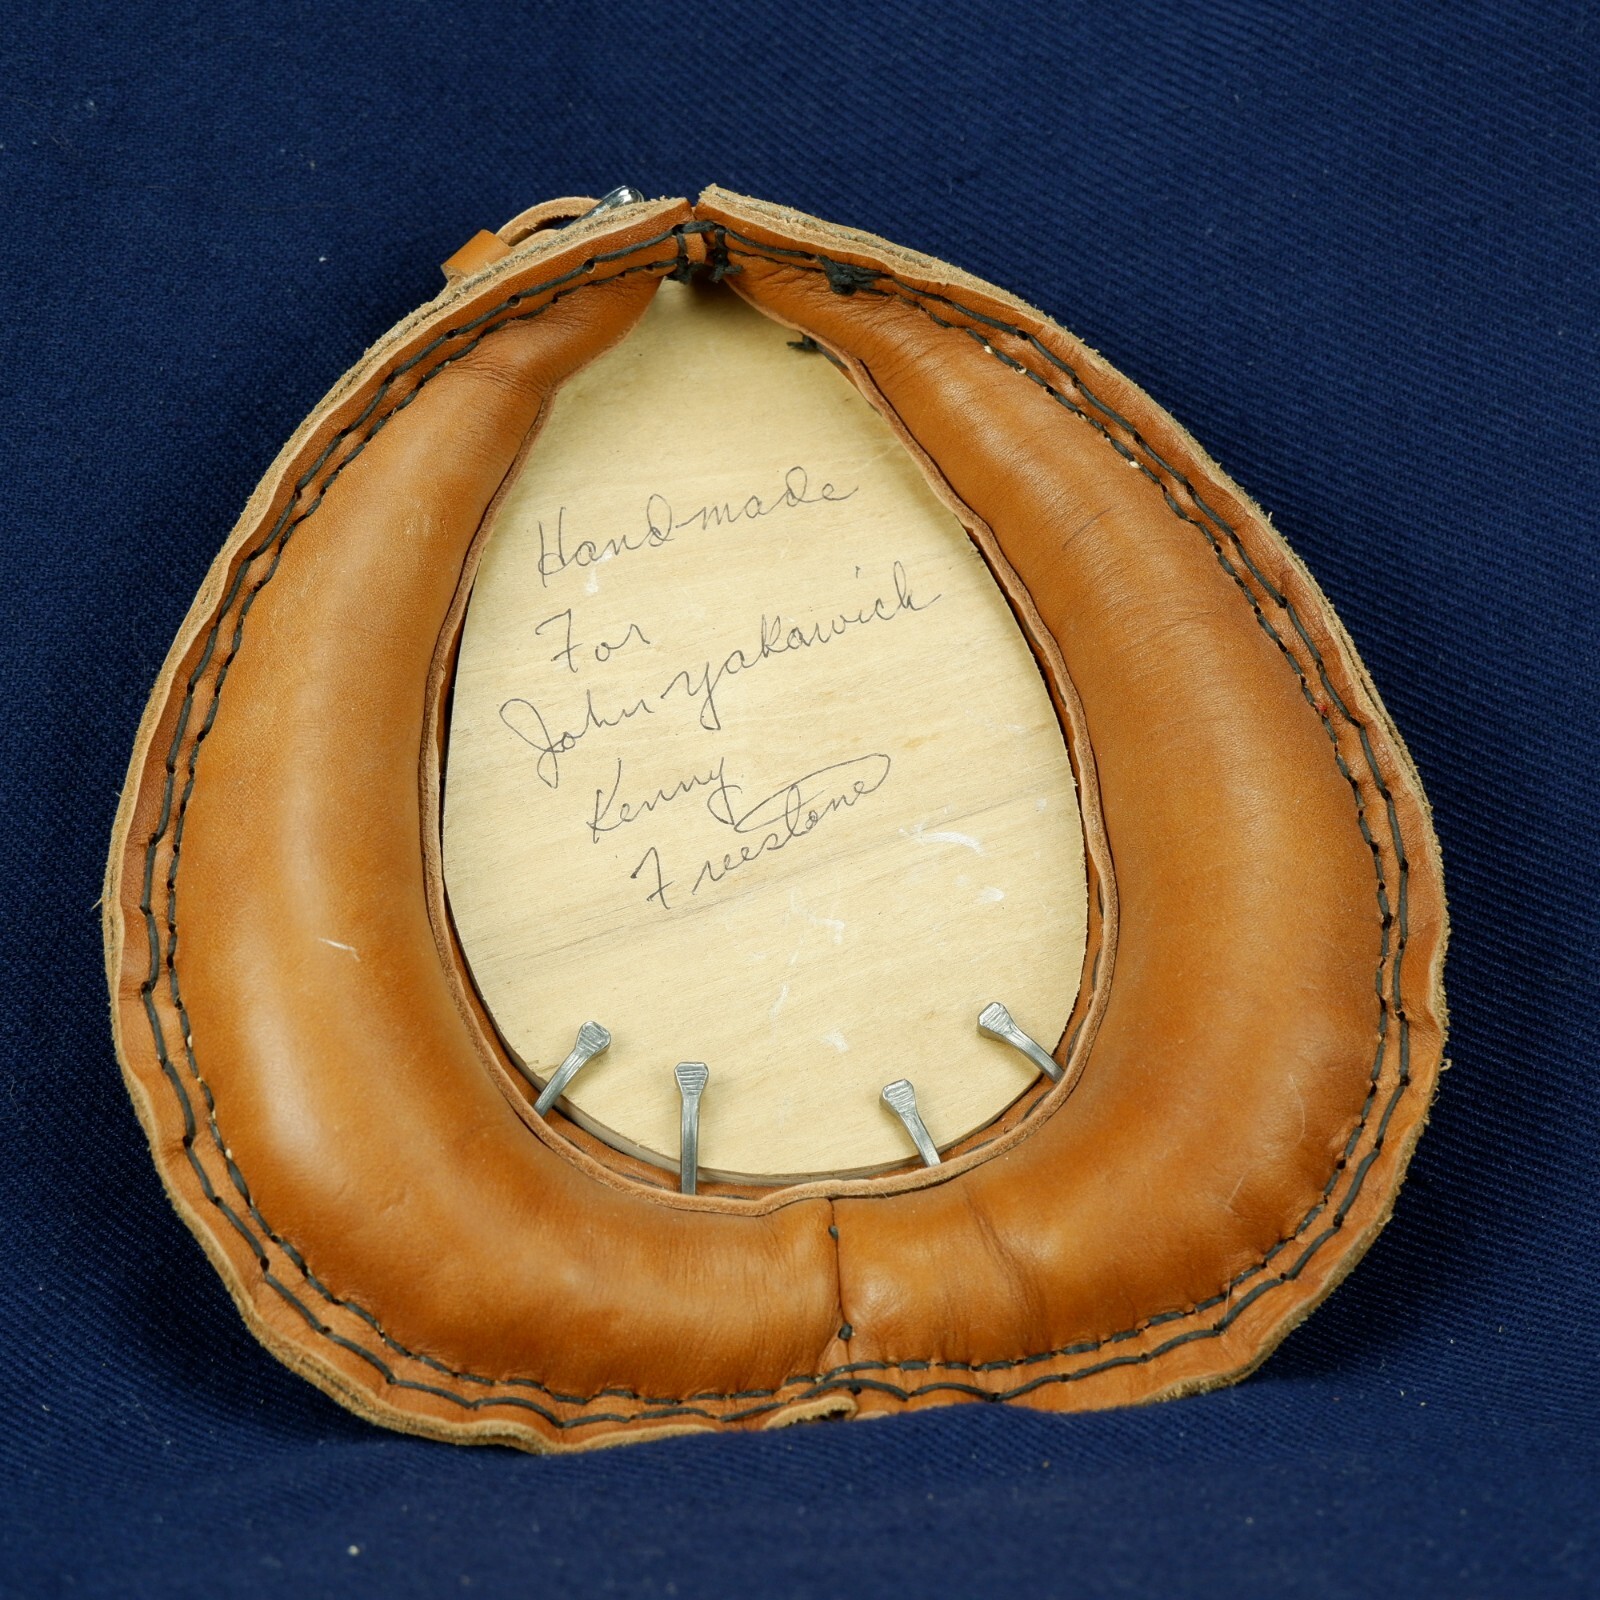 Hand-made
For
John Yakawich
Kenny
Freestone